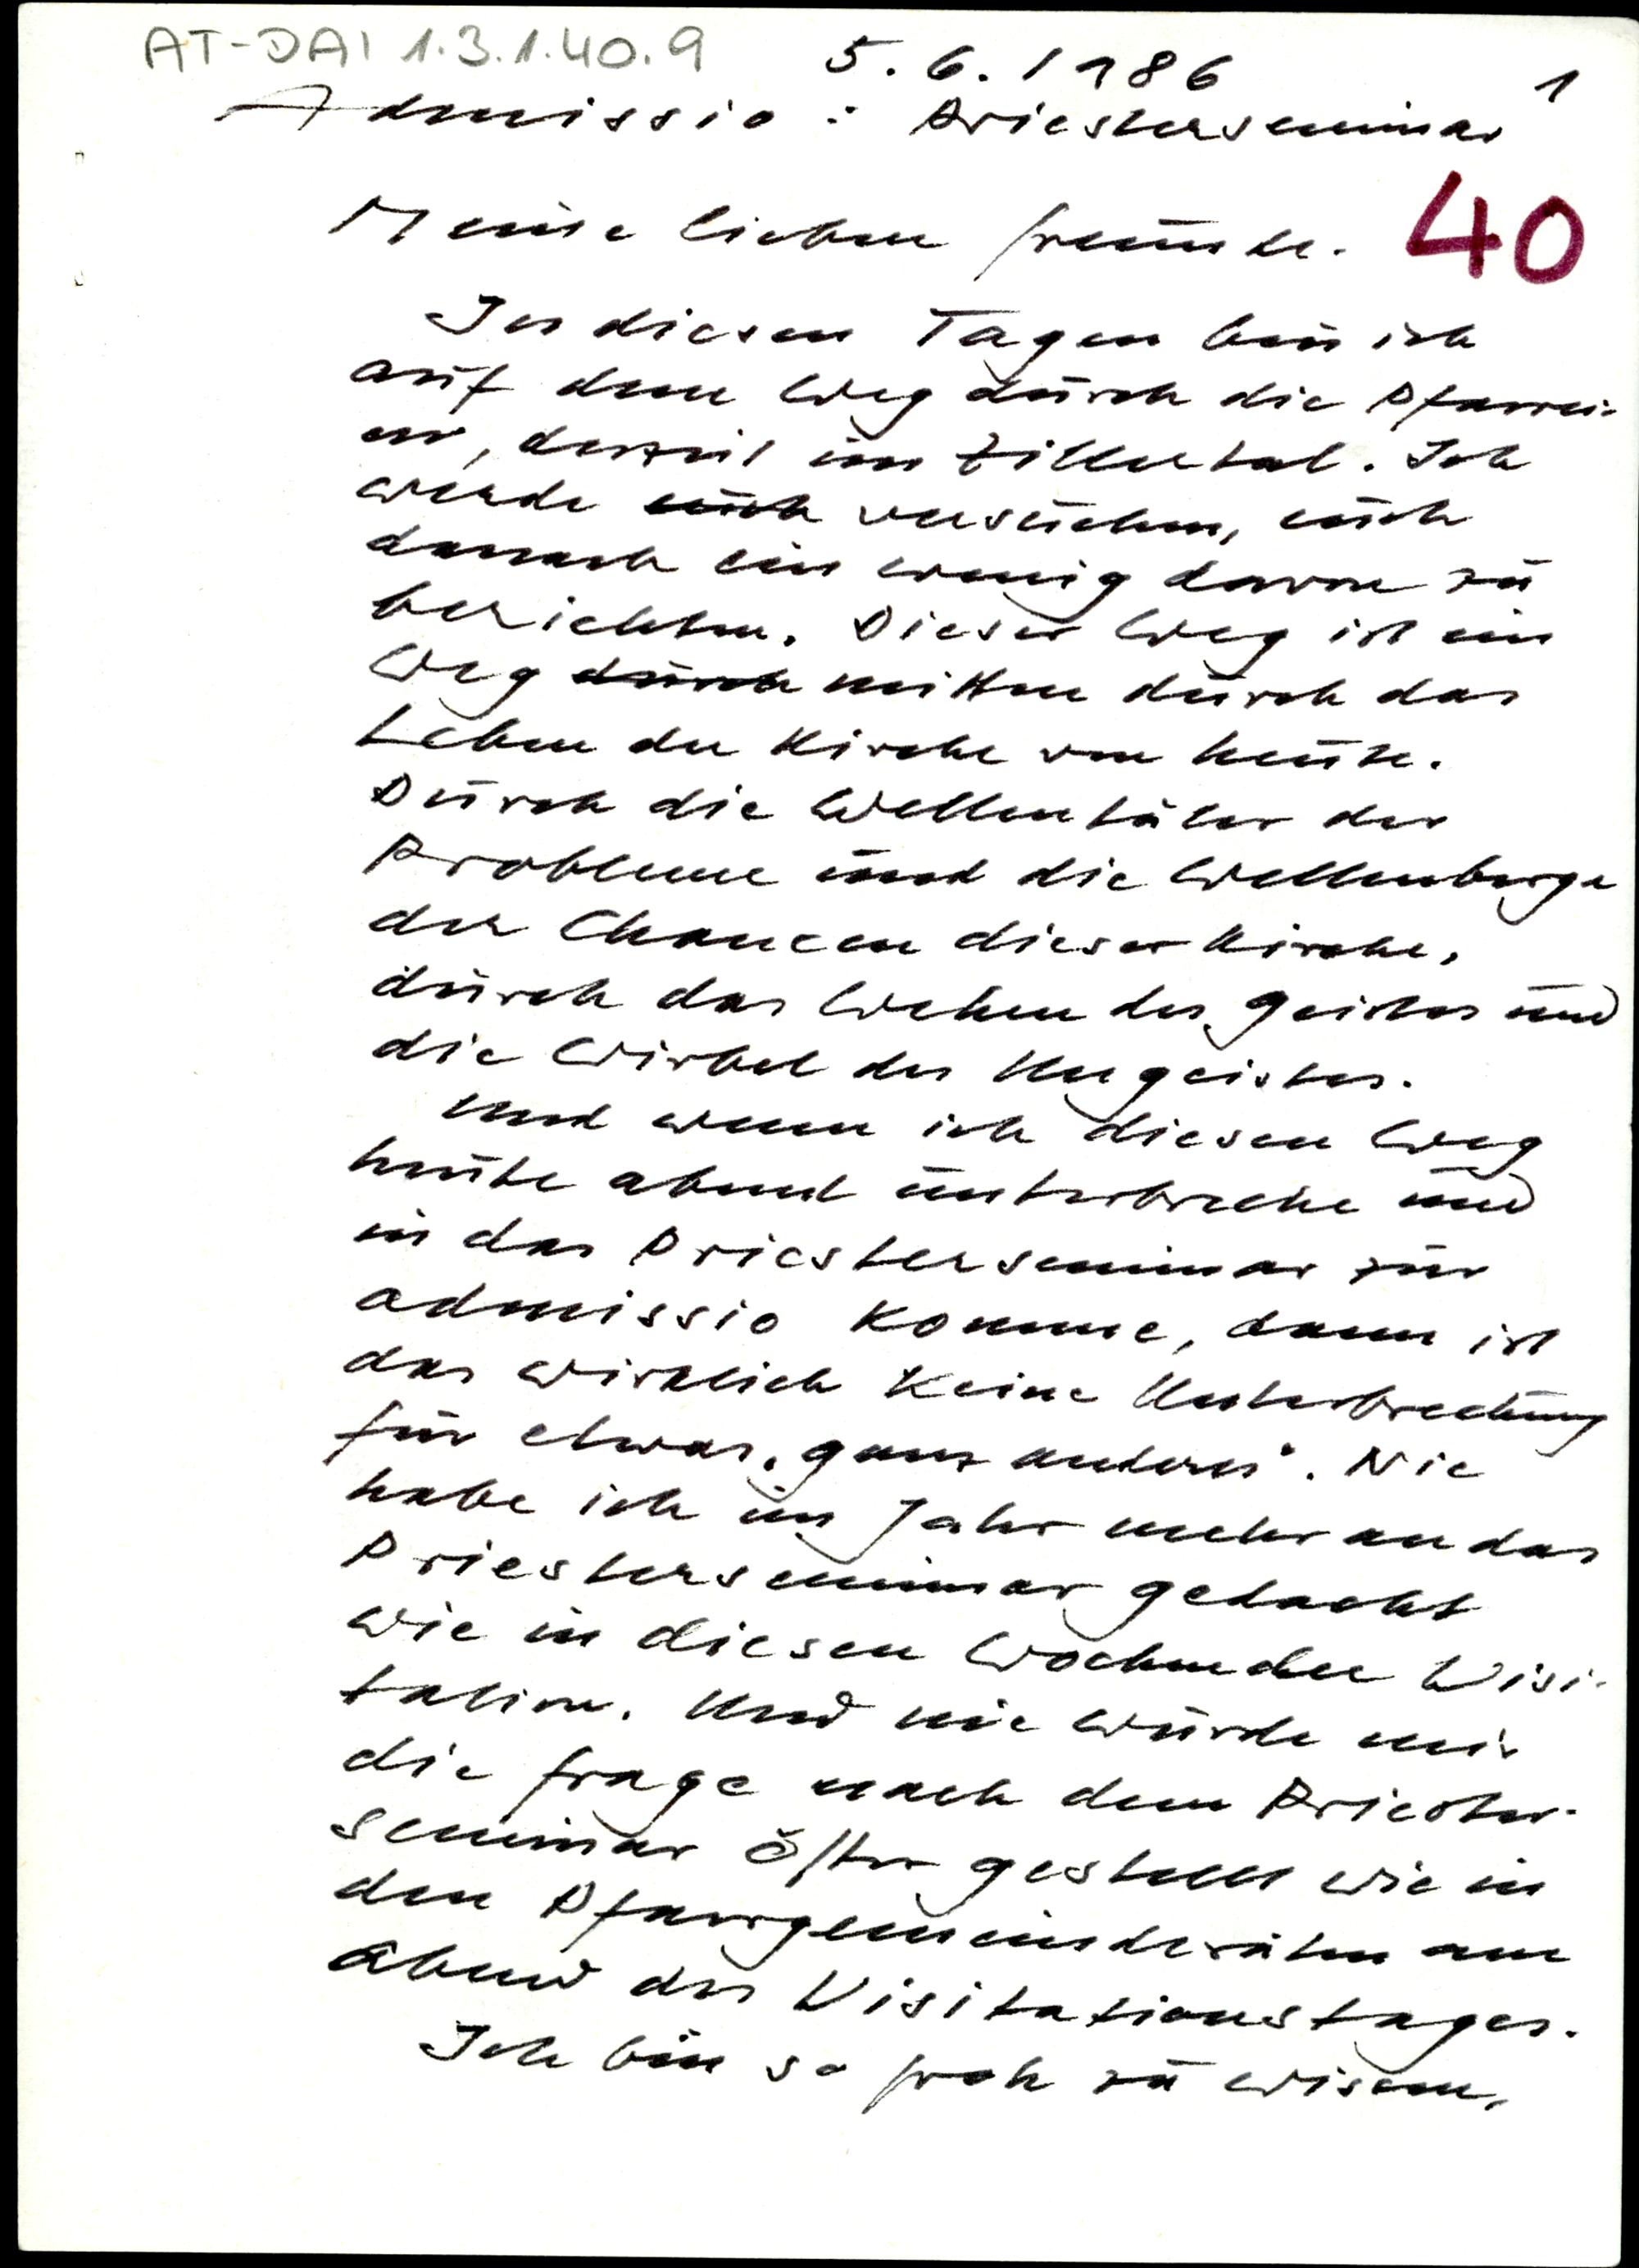 AT-DAI 1.3.1.40.9
5.6.1986 1
Admissio: Priesterseminar
40
Meine lieben Freunde.
In diesen Tagen bin ich
auf dem Weg durch die Pfarrei-
en, derzeit im Zillertal. Ich
werde euch versuchen, euch
danach ein wenig davon zu
berichten. Dieser Weg ist ein
Weg durch mitten durch das
Leben der Kirche von heute.
Durch die Wellentäler der
Probleme und die Wellenberge
der Chancen dieser Kirche,
durch das Wehen des Geistes und
die Wirbel des Ungeistes.
Und wenn ich diesen Weg
heute abend unterbreche und
in das Priesterseminar zur
admissio komme, dann ist
das wirklich keine Unterbrechung
für etwas „ganz anderes“. Nie
habe ich im Jahr mehr an das
Priesterseminar gedacht
wie in diesen Wochen der Visi-
tation. Und nie wurde mir
die Frage nach dem Priester-
seminar öfter gestellt wie in
den Pfarrgemeinderäten am
Abend des Visitationstages.
Ich bin so froh zu wissen,